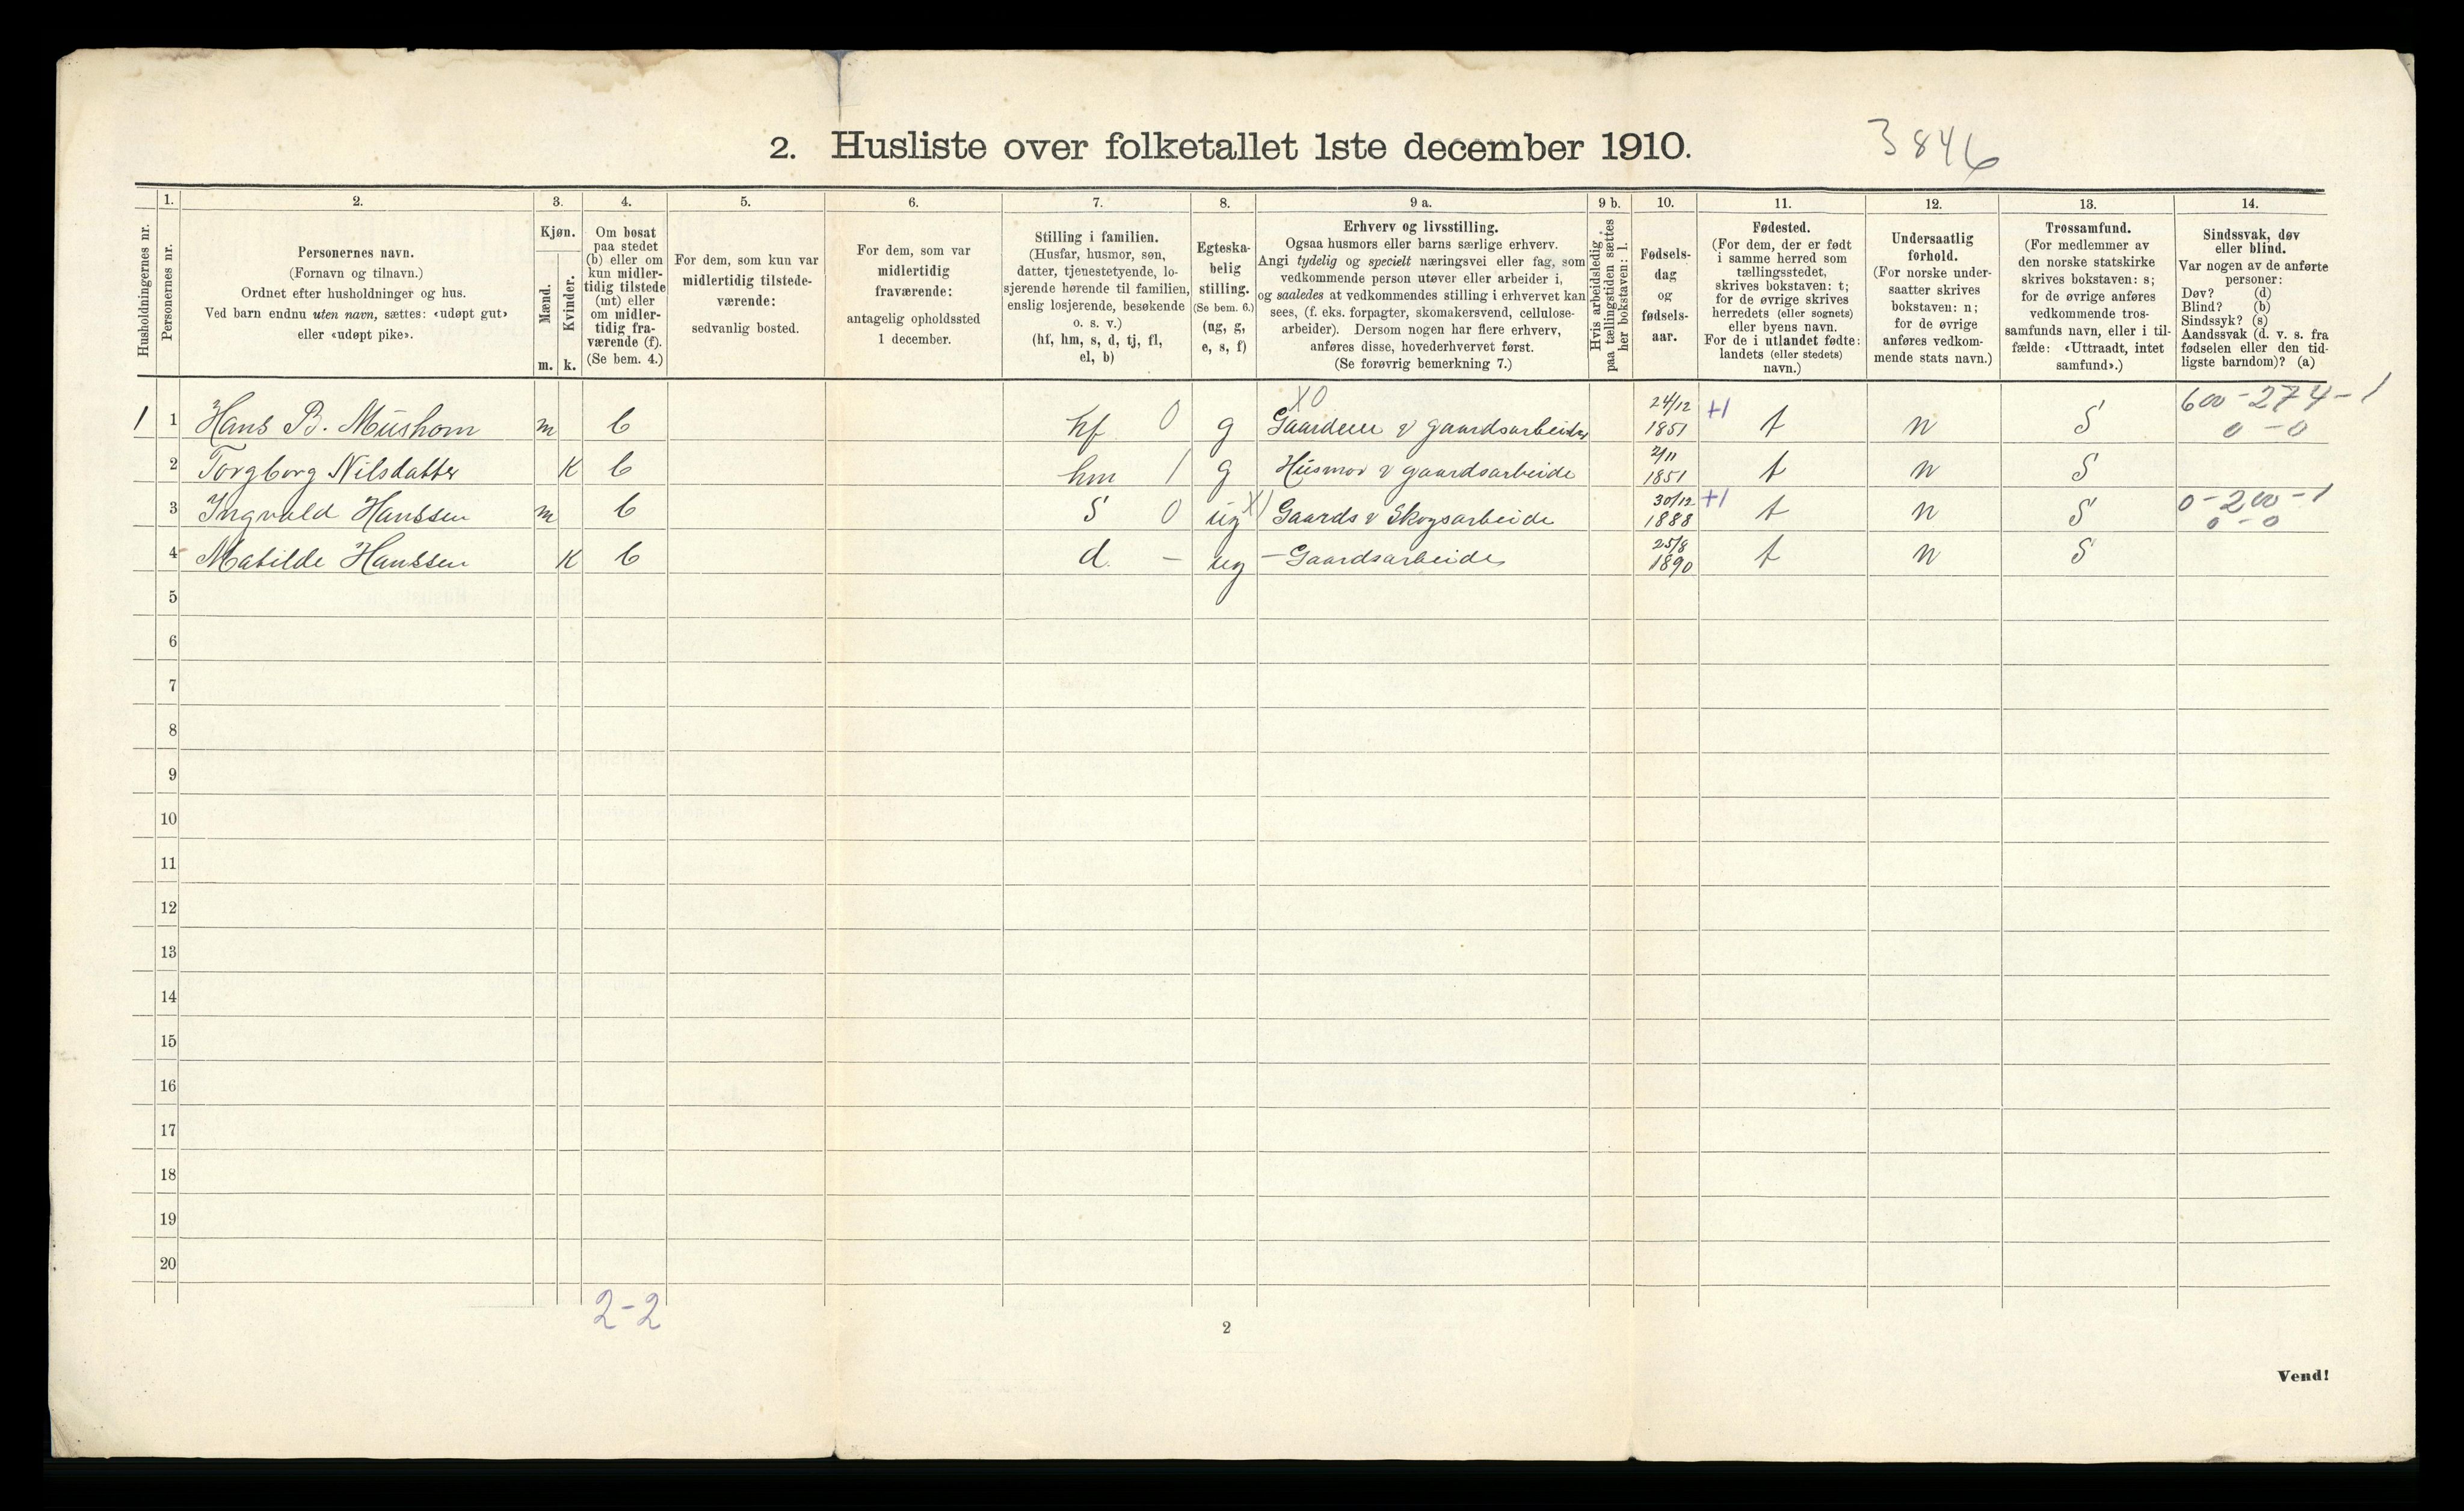 2. Husliste over folketallet 1ste december 1910.
3846
Husholdningernes nr.
1.
Personernes nr.
2.
Personernes navn.
(Fornavn og tilnavn.)
Ordnet efter husholdninger og hus.
Ved barn endnu uten navn, sættes: «udøpt gut»
eller «udøpt pike».
3.
Kjøn.
Mænd.
Kvinder.
m. k.
4.
Om bosat
paa stedet
(b) eller om
kun midler-
tidig tilstede
(mt) eller
om midler-
tidig fra-
værende (f).
(Se bem. 4.)
5.
For dem, som kun var
midlertidig tilstede-
værende:
sedvanlig bosted.
6.
For dem, som var
midlertidig
fraværende:
antagelig opholdssted
1 december.
7.
Stilling i familien.
(Husfar, husmor, søn,
datter, tjenestetyende, lo-
sjerende hørende til familien,
enslig losjerende, besøkende
o. s. v.)
(hf, hm, s, d, tj, fl,
el, b)
8.
Egteska-
belig
stilling.
(Se bem. 6.)
(ug, g,
e, s, f)
9 a.
Erhverv og livsstilling.
Ogsaa husmors eller barns særlige erhverv.
Angi tydelig og specielt næringsvei eller fag, som
vedkommende person utøver eller arbeider i,
og saaledes at vedkommendes stilling i erhvervet kan
sees, (f. eks. forpagter, skomakersvend, cellulose-
arbeider). Dersom nogen har flere erhverv,
anføres disse, hovederhvervet først.
(Se forøvrig bemerkning 7.)
9 b.
Hvis arbeidsledig
paa tællingstiden sættes
her bokstaven: l.
10.
Fødsels-
dag
og
fødsels-
aar.
11.
Fødested.
(For dem, der er født
i samme herred som
tællingsstedet,
skrives bokstaven: t;
for de øvrige skrives
herredets (eller sognets)
eller byens navn.
For de i utlandet fødte:
landets (eller stedets)
navn.)
12.
Undersaatlig
forhold.
(For norske under-
saatter skrives
bokstaven: n;
for de øvrige
anføres vedkom-
mende stats navn.)
13.
Trossamfund.
(For medlemmer av
den norske statskirke
skrives bokstaven: s;
for de øvrige anføres
vedkommende tros-
samfunds navn, eller i til-
fælde: «Uttraadt, intet
samfund».)
14.
Sindssvak, døv
eller blind.
Var nogen av de anførte
personer:
Døv? (d)
Blind? (b)
Sindssyk? (s)
Aandssvak (d. v. s. fra
fødselen eller den tid-
ligste barndom)? (a)
X0 24/12 600-274-1
1 1 Hans B. Mushom m b hf 0 g Gaardeier & gaardsarbeider 1851 +1 t n S 0-0
2 Torgborg Nilsdatter K b hm 1 g Husmor & gaardsarbeide 2/11 1851 t n S
3 Ingvald Hanssen m b S 0 ug X1 Gaards & Skogsarbeide 30/12 1888 +1 t n S 0-200-1
0-0
4 Matilde Hanssen K b d. - ug - Gaardsarbeide 25/8 1890 t n S
5
6
7
8
9
10
11
12
13
14
15
16
17
18
19
20
2-2
2
Vend!